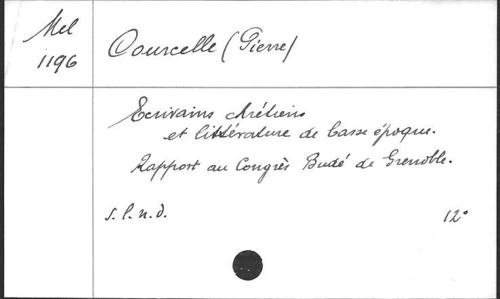 Mel
1196
Courcelle (Pierre)
Ecrivains chrétiens
et littérature de basse époque.
Rapport au Congrès Budé de Grenoble.
s.l.n.d.
12°